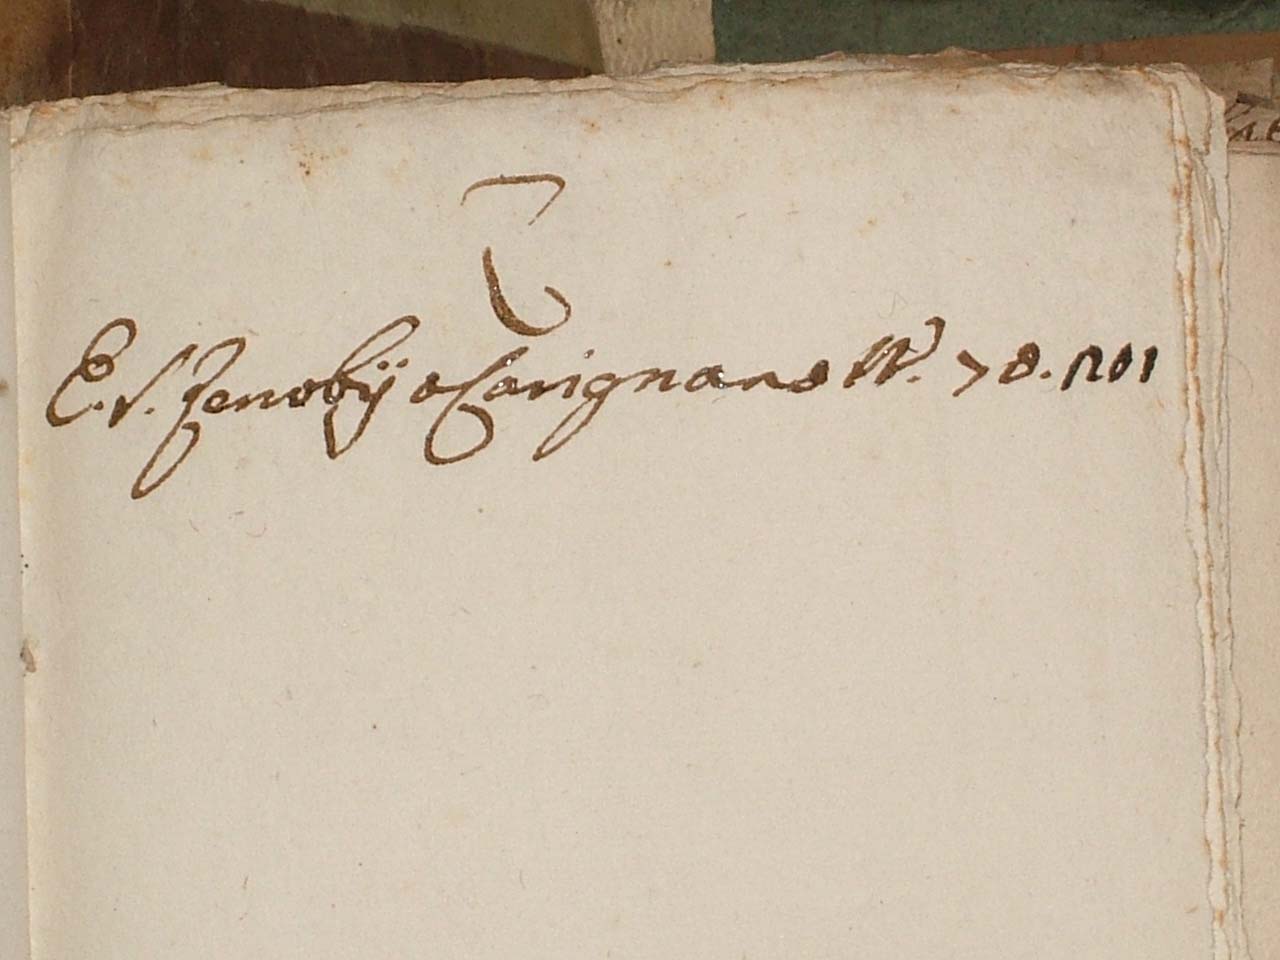 E. S. Zenobij a Carignano N. 78. 1701